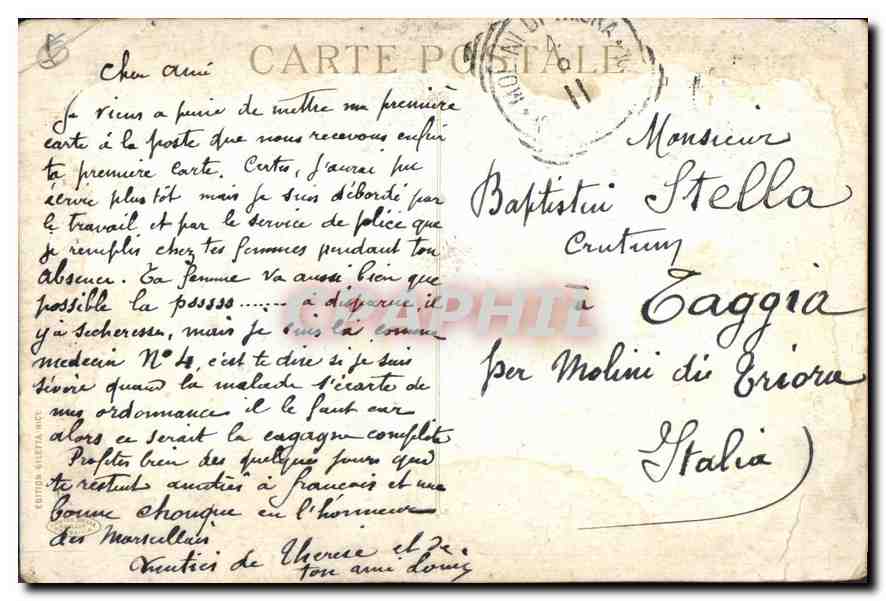 CARTE POSTALE
MOLINI DI TRIORA
Cher ami
Je viens a peine de mettre ma première
carte à la poste que nous recevons enfin
ta première carte. Certes, j'aurai pu
écrire plus tôt mais je suis débordé par
le travail et par le service de police que
je remplis chez tes femmes pendant ton
absence. Ta femme va aussi bien que
possible la psssss ........ à disparue il
y à secheresse, mais je suis là comme
medecin N° 4, c'est te dire si je suis
sévère quand la malade s'écarte de
mes ordonnances il le faut car
alors ce serait la cagagne complète
Profites bien des quelques jours qui
te restent amitiés à francois et une
bonne chouque en l'honneur
des Marseillais
Amitiés de Thérèse et de
ton ami Louis
Monsieur
Baptistin Stella
à Taggia
per Molini di Triora
Italia
EDITION GILETTA NICE
CPAPHIL